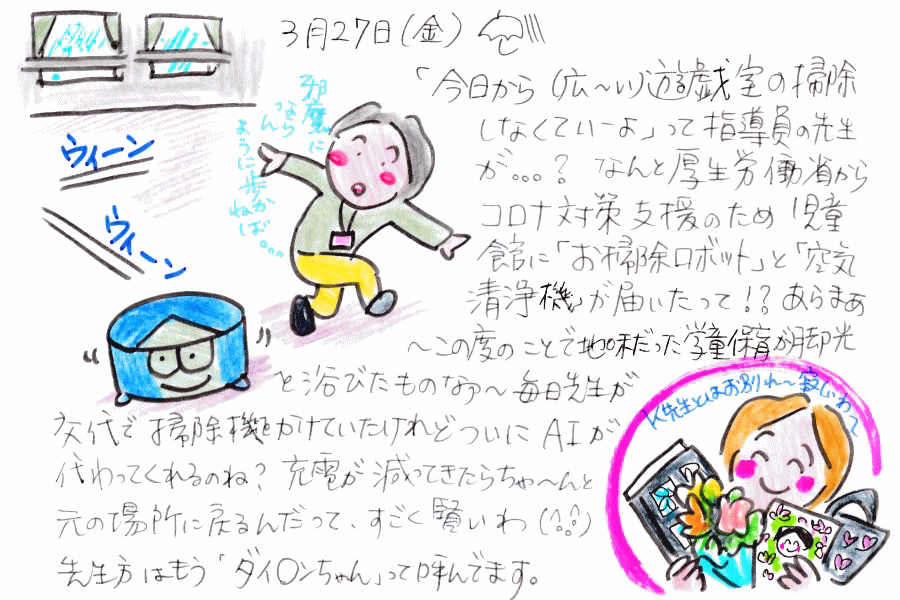 3月27日(金)
「今日から(広〜い)遊戯室の掃除
しなくていーよ」って指導員の先生
が。。。？ なんと厚生労働省から
コロナ対策支援のため児童
館に「お掃除ロボット」と「空気
清浄機」が届いたって！？あらまぁ
〜この度のことで地味だった学童保育が脚光
と浴びたものなァ〜毎日先生が
交代で掃除機をかけていたけれどついにAIが
代わってくれるのね？充電が減ってきたらちゃ〜んと
元の場所に戻るんだって、すごく賢いわ
先生方はもう「ダイ〇ンちゃん」って呼んでます。
邪魔に
なら
ん
ように歩か
ねば。。。
ウィーン
ウィーン
K先生とはお別れ〜寂しいわ〜